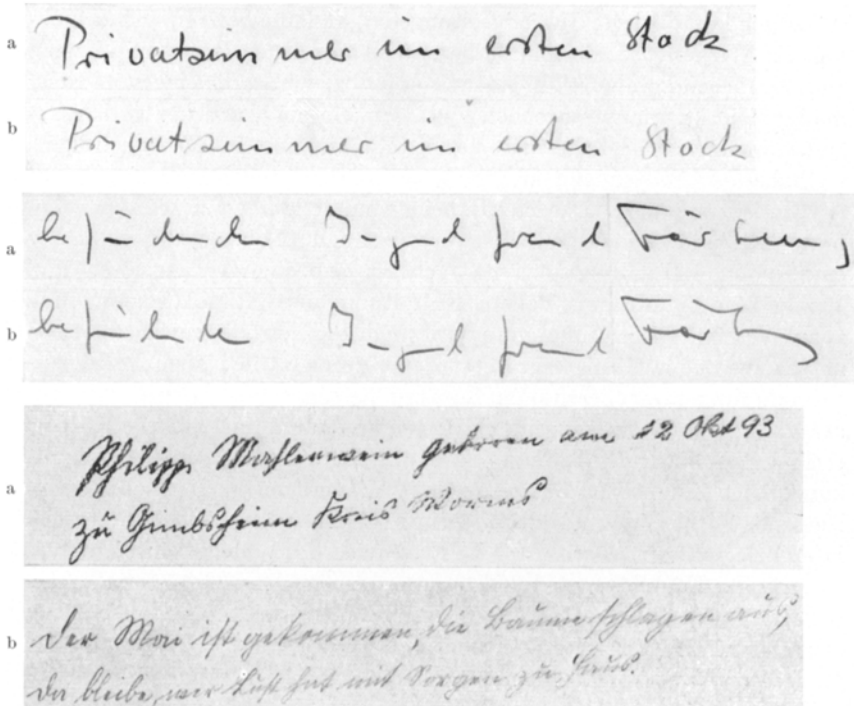 a Privatzimmer im ersten Stock
b Privatzimmer im ersten Stock
a Jugendfreund
b Jugendfreund
a Philipp Mahlerwein geboren am 12 Okt 93
zu Gimbsheim Kreis Worms
b Der Mai ist gekommen, die Bäume schlagen aus,
da bleibe, wer Lust hat mit Sorgen zu Haus.